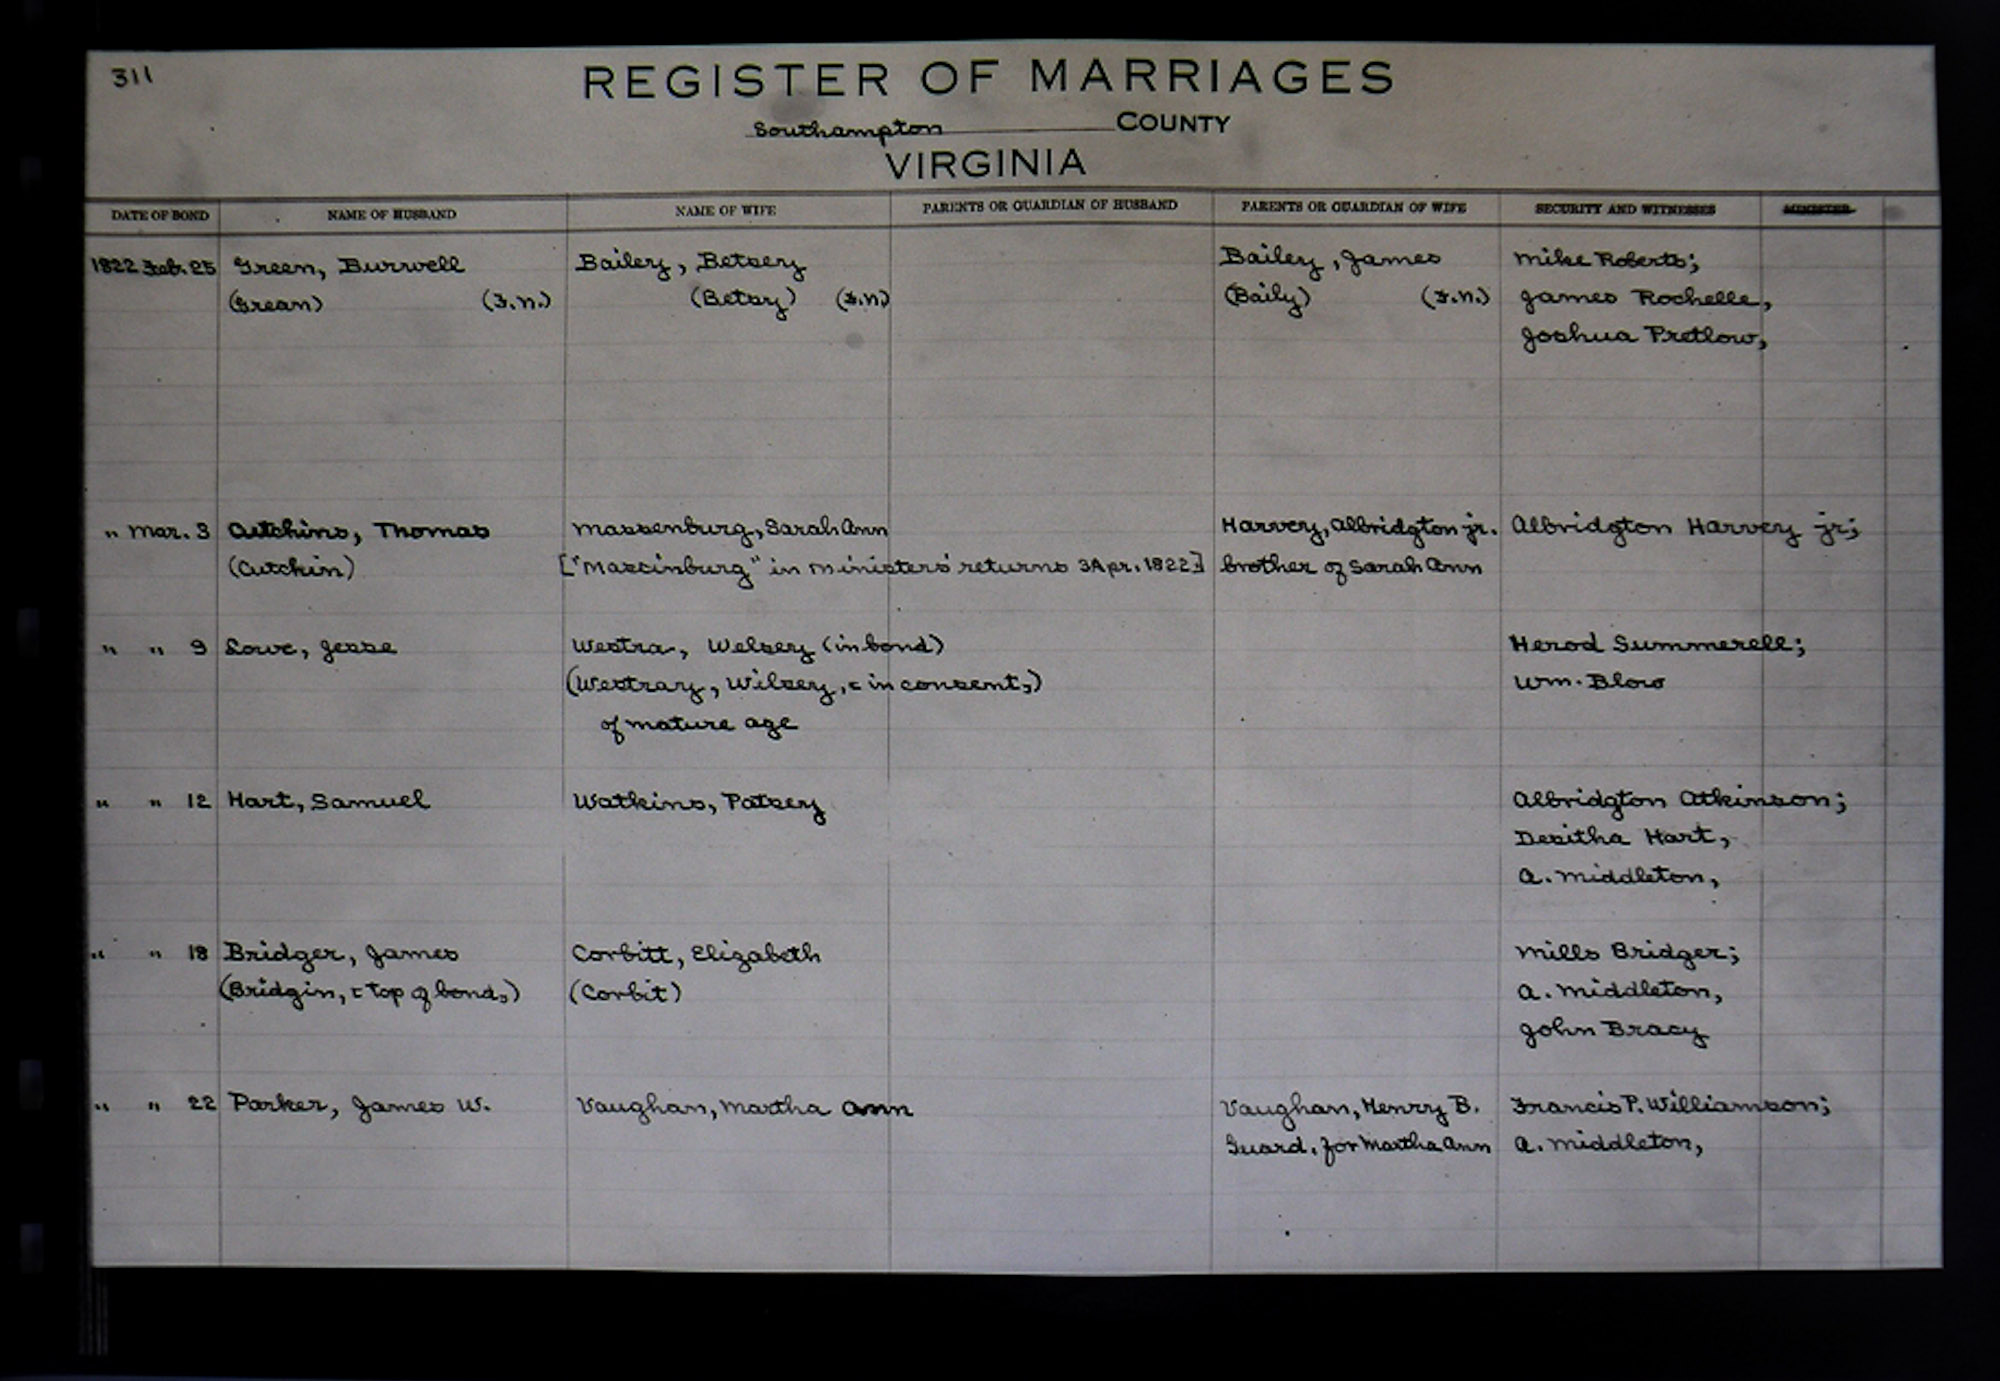 311
REGISTER OF MARRIAGES
Southampton COUNTY
VIRGINIA
DATE OF BOND NAME OF HUSBAND NAME OF WIFE PARENTS OR GUARDIAN OF HUSBAND PARENTS OR GUARDIAN OF WIFE SECURITY AND WITNESSES MINISTER
1822 Feb. 25 Green, Burwell Bailey, Betsey Bailey, James Mike Roberts;
(Grean) (F.N.) (Betsy) (F.N.) (Baily) (F.N.) James Rochelle,
Joshua Pretlow,
" Mar. 3 Cutchins, Thomas Massenburg, Sarah Ann Harvey, Albridgton jr. Albridgton Harvey jr;
(Cutchin) ["Mascinburg" in ministers' returns 3 Apr. 1822] brother of Sarah Ann
" " 9 Lowe, Jesse Westra, Welsey (in bond) Herod Summerell;
(Westray, Wilsey, in consent,) Wm. Blow
of mature age
" " 12 Hart, Samuel Watkins, Patsey Albridgton Atkinson;
Desitha Hart,
A. Middleton,
" " 18 Bridger, James Corbitt, Elizabeth Mills Bridger;
(Bridgin, top of bond,) (Corbit) A. Middleton,
John Bracy
" " 22 Parker, James W. Vaughan, Martha Ann Vaughan, Henry B. Francis P. Williamson;
Guard. for Martha Ann A. Middleton,